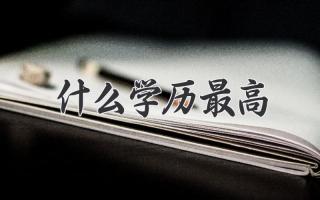 什么学历最高